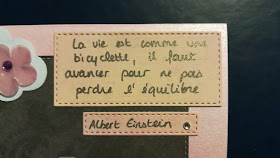 La vie est comme une
bicyclette, il faut
avancer pour ne pas
perdre l'équilibre
Albert Einstein